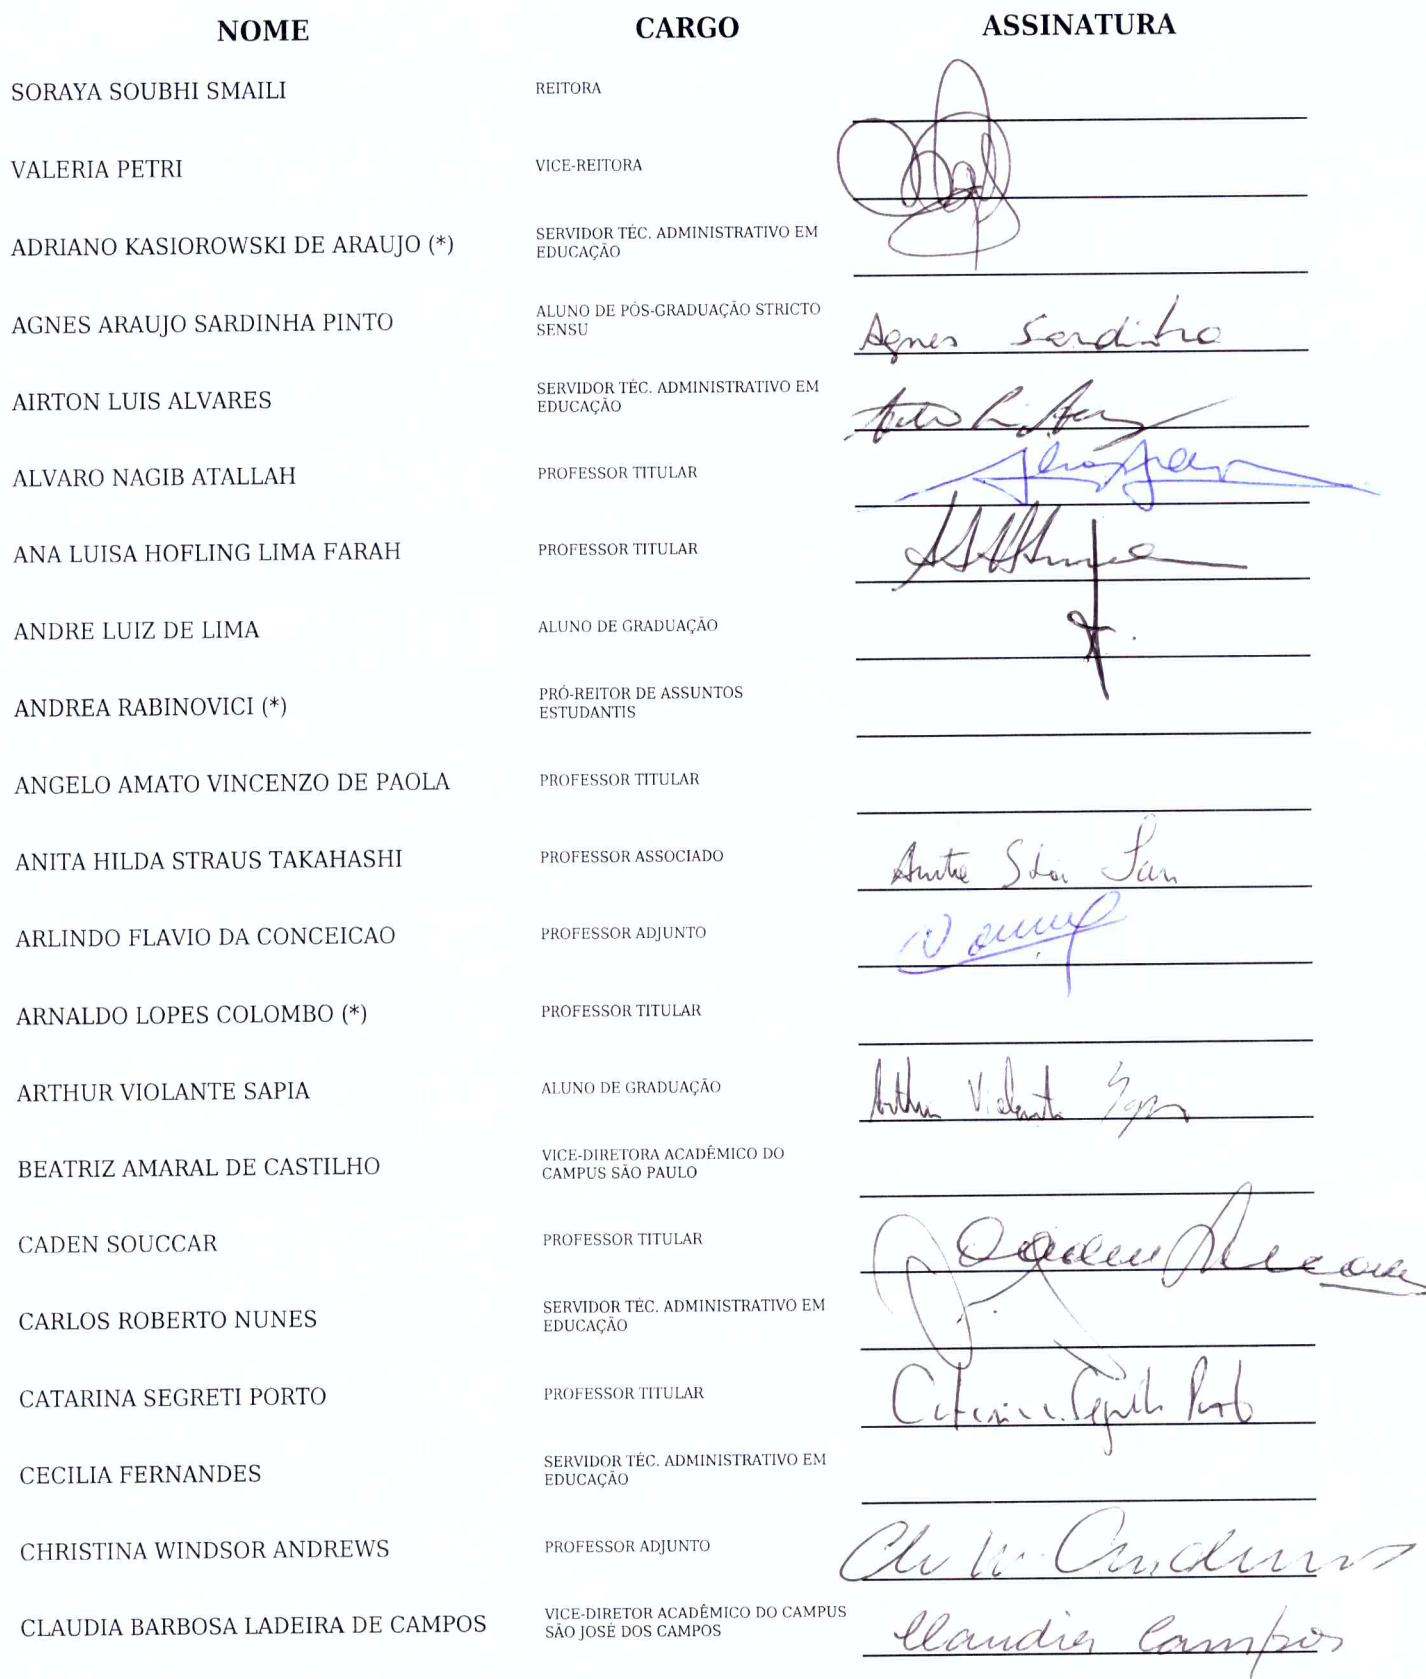 NOME CARGO ASSINATURA
SORAYA SOUBHI SMAILI REITORA
VALERIA PETRI VICE-REITORA
ADRIANO KASIOROWSKI DE ARAUJO (*) SERVIDOR TÉC. ADMINISTRATIVO EM
EDUCAÇÃO
AGNES ARAUJO SARDINHA PINTO ALUNO DE PÓS-GRADUAÇÃO STRICTO
SENSU Agnes Sardinha
AIRTON LUIS ALVARES SERVIDOR TÉC. ADMINISTRATIVO EM
EDUCAÇÃO
ALVARO NAGIB ATALLAH PROFESSOR TITULAR
ANA LUISA HOFLING LIMA FARAH PROFESSOR TITULAR
ANDRE LUIZ DE LIMA ALUNO DE GRADUAÇÃO
ANDREA RABINOVICI (*) PRÓ-REITOR DE ASSUNTOS
ESTUDANTIS
ANGELO AMATO VINCENZO DE PAOLA PROFESSOR TITULAR
ANITA HILDA STRAUS TAKAHASHI PROFESSOR ASSOCIADO
ARLINDO FLAVIO DA CONCEICAO PROFESSOR ADJUNTO
ARNALDO LOPES COLOMBO (*) PROFESSOR TITULAR
ARTHUR VIOLANTE SAPIA ALUNO DE GRADUAÇÃO Arthur Violante
BEATRIZ AMARAL DE CASTILHO VICE-DIRETORA ACADÊMICO DO
CAMPUS SÃO PAULO
CADEN SOUCCAR PROFESSOR TITULAR Caden Souccar
CARLOS ROBERTO NUNES SERVIDOR TÉC. ADMINISTRATIVO EM
EDUCAÇÃO
CATARINA SEGRETI PORTO PROFESSOR TITULAR Catarina Segreti Porto
CECILIA FERNANDES SERVIDOR TÉC. ADMINISTRATIVO EM
EDUCAÇÃO
CHRISTINA WINDSOR ANDREWS PROFESSOR ADJUNTO Chr W. Andrews
CLAUDIA BARBOSA LADEIRA DE CAMPOS VICE-DIRETOR ACADÊMICO DO CAMPUS
SÃO JOSÉ DOS CAMPOS Claudia Campos